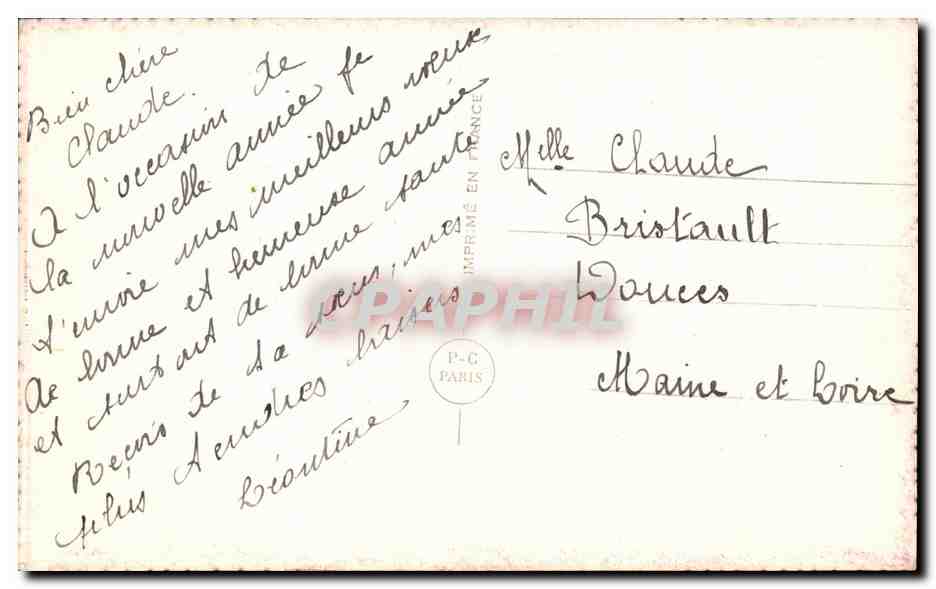 Bien chère
Claude. De
A l'occasion de
la nouvelle année je
t'envoie mes meilleurs vœux
de bonne et heureuse année
et surtout de bonne santé
Reçois de ta sœur, mes
plus tendres baisers
Léontine
IMPRIMÉ EN FRANCE
P-C
PARIS
Melle Claude
Bristault
Douces
Maine et Loire
CPAPHIL